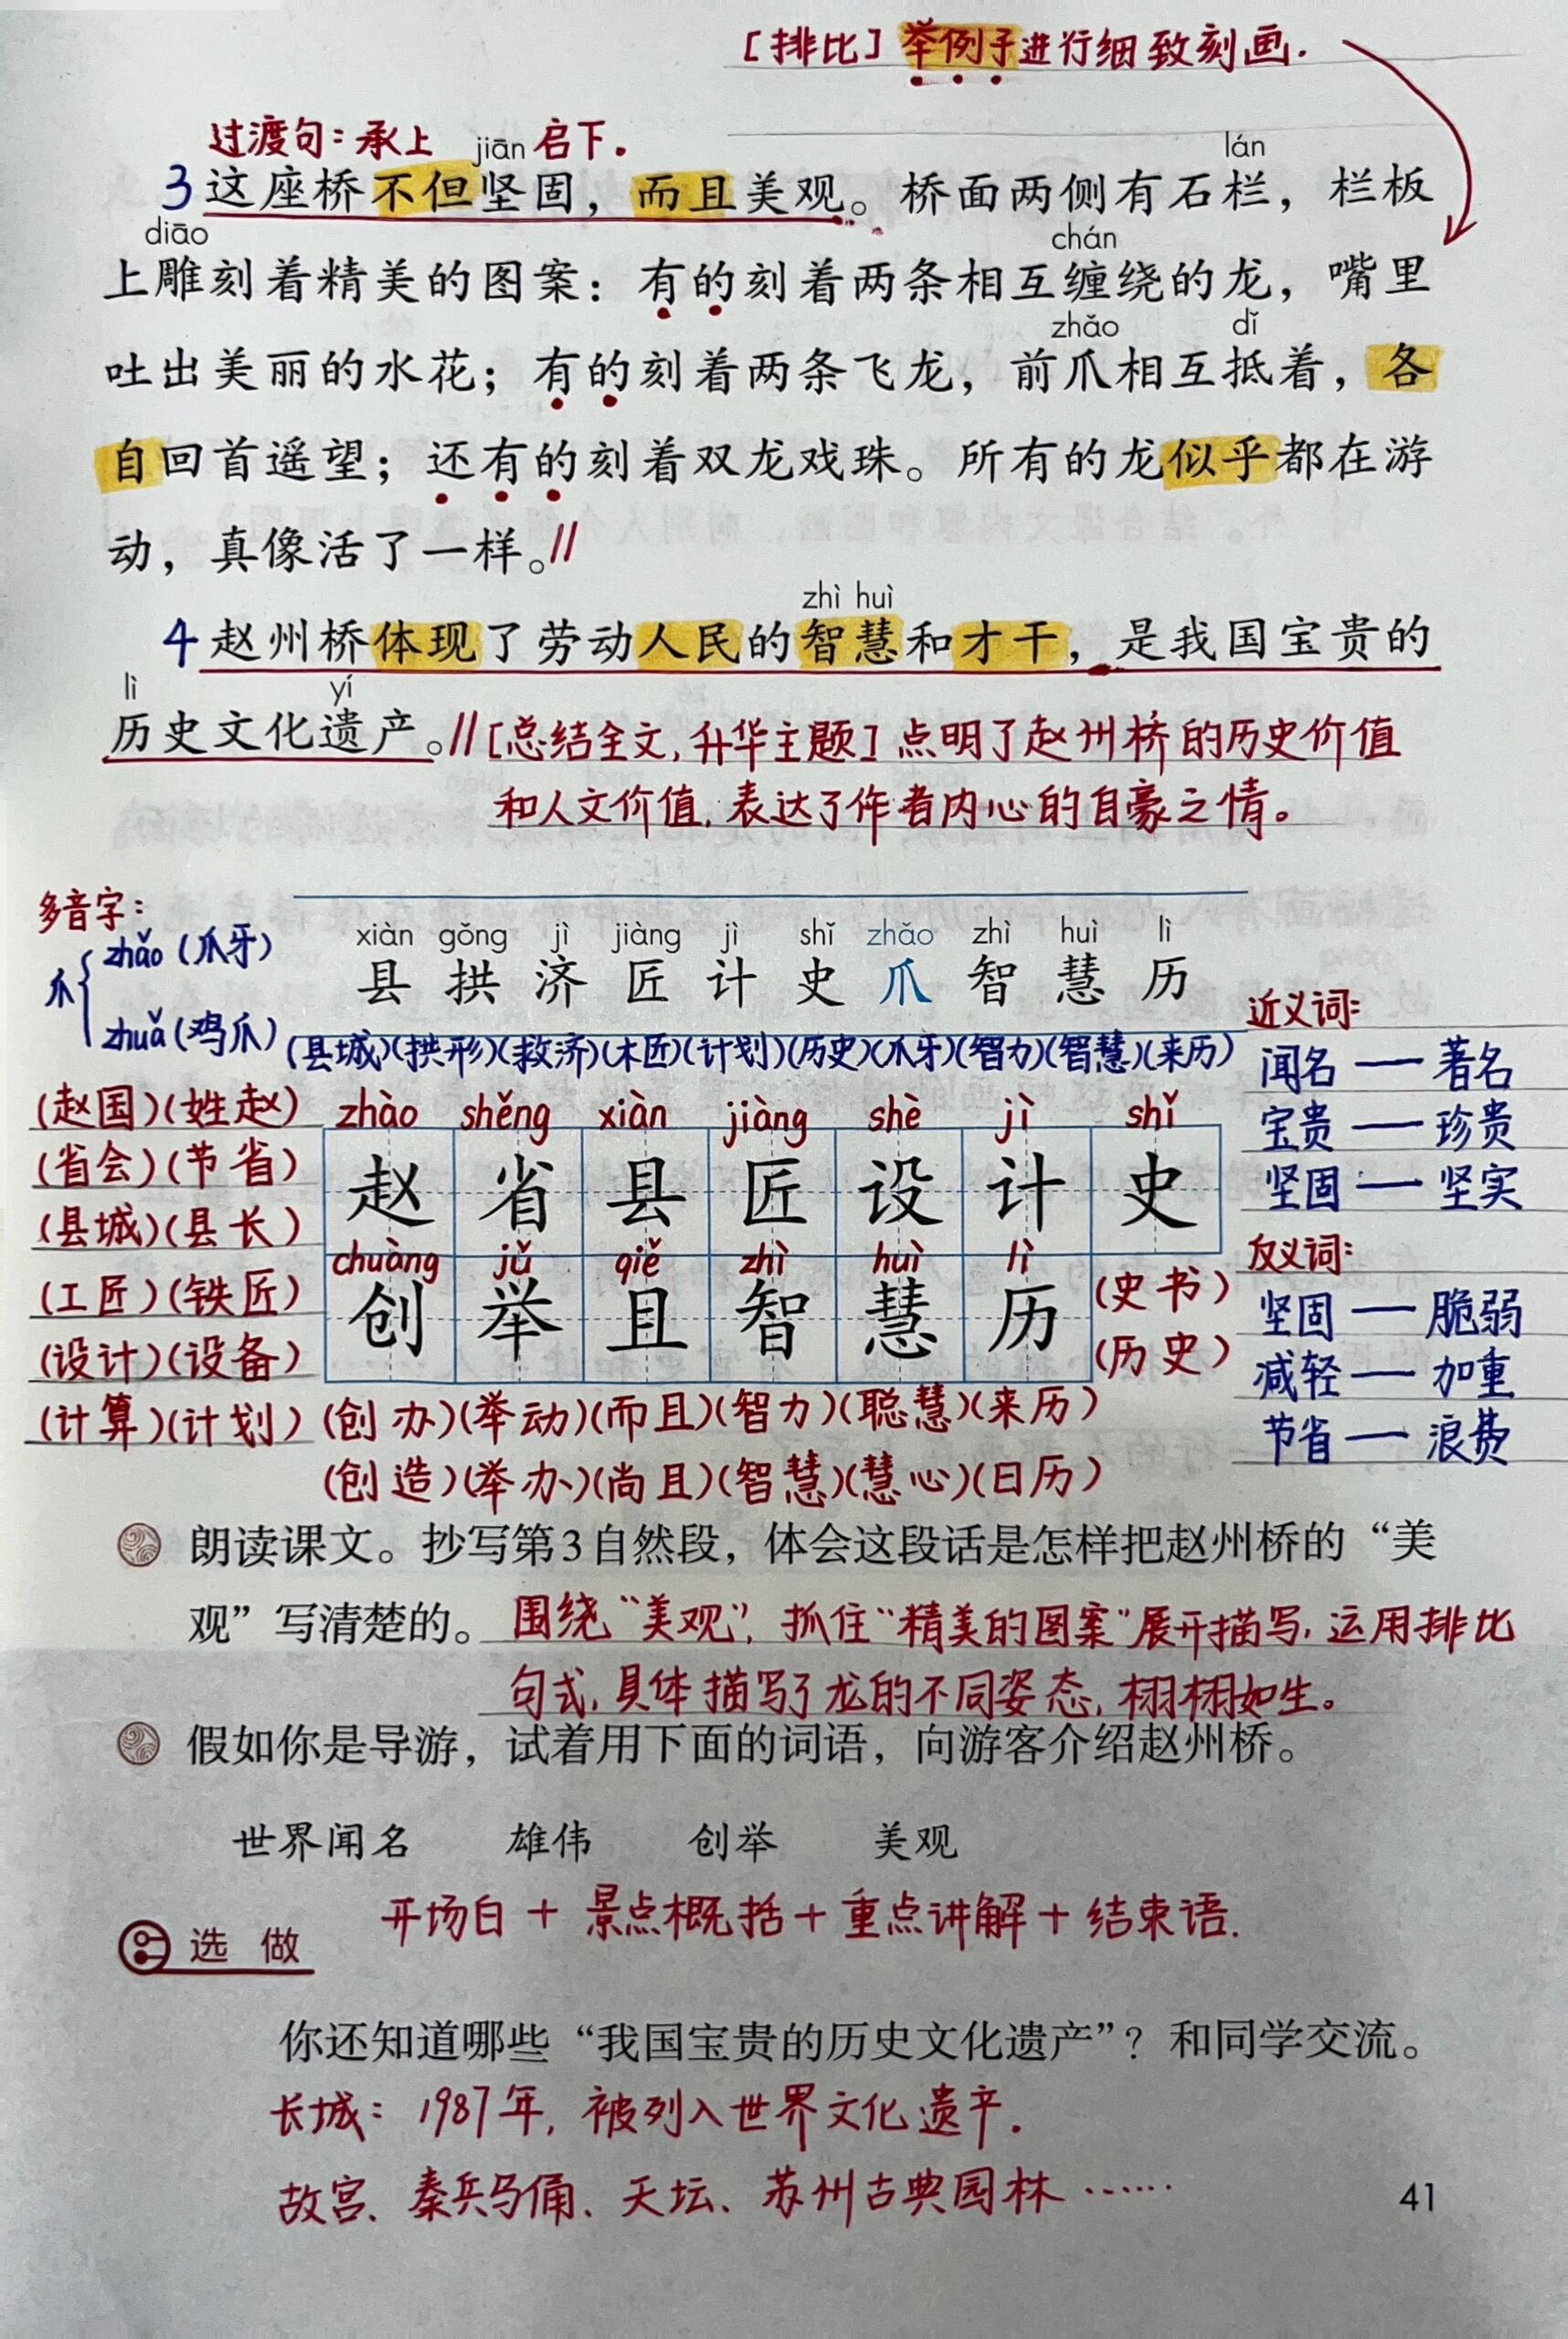 [排比] 举例子进行细致刻画.
过渡句:承上 启下.
jiān lán
3 这座桥不但坚固，而且美观。桥面两侧有石栏，栏板
diāo chán
上雕刻着精美的图案：有的刻着两条相互缠绕的龙，嘴里
zhǎo dǐ
吐出美丽的水花；有的刻着两条飞龙，前爪相互抵着，各
自回首遥望；还有的刻着双龙戏珠。所有的龙似乎都在游
动，真像活了一样。//
zhì huì
4 赵州桥体现了劳动人民的智慧和才干，是我国宝贵的
lì yí
历史文化遗产。// [总结全文,升华主题] 点明了赵州桥的历史价值
和人文价值,表达了作者内心的自豪之情。
多音字:
爪 { zhǎo (爪牙)
zhuǎ (鸡爪)
xiàn gǒng jì jiàng jì shǐ zhǎo zhì huì lì
县 拱 济 匠 计 史 爪 智 慧 历
(县城)(拱形)(救济)(木匠)(计划)(历史)(爪牙)(智力)(智慧)(来历)
近义词:
闻名 — 著名
宝贵 — 珍贵
坚固 — 坚实
反义词:
坚固 — 脆弱
减轻 — 加重
节省 — 浪费
(赵国)(姓赵)
(省会)(节省)
(县城)(县长)
(工匠)(铁匠)
(设计)(设备)
(计算)(计划)
zhào shěng xiàn jiàng shè jì shǐ
赵 省 县 匠 设 计 史
chuàng jǔ qiě zhì huì lì
创 举 且 智 慧 历
(史书)
(历史)
(创办)(举动)(而且)(智力)(聪慧)(来历)
(创造)(举办)(尚且)(智慧)(慧心)(日历)
朗读课文。抄写第3自然段，体会这段话是怎样把赵州桥的“美
观”写清楚的。 围绕“美观”,抓住“精美的图案”展开描写,运用排比
句式,具体描写了龙的不同姿态,栩栩如生。
假如你是导游，试着用下面的词语，向游客介绍赵州桥。
世界闻名 雄伟 创举 美观
开场白 + 景点概括 + 重点讲解 + 结束语.
选做
你还知道哪些“我国宝贵的历史文化遗产”？和同学交流。
长城: 1987年,被列入世界文化遗产.
故宫、秦兵马俑、天坛、苏州古典园林……
41